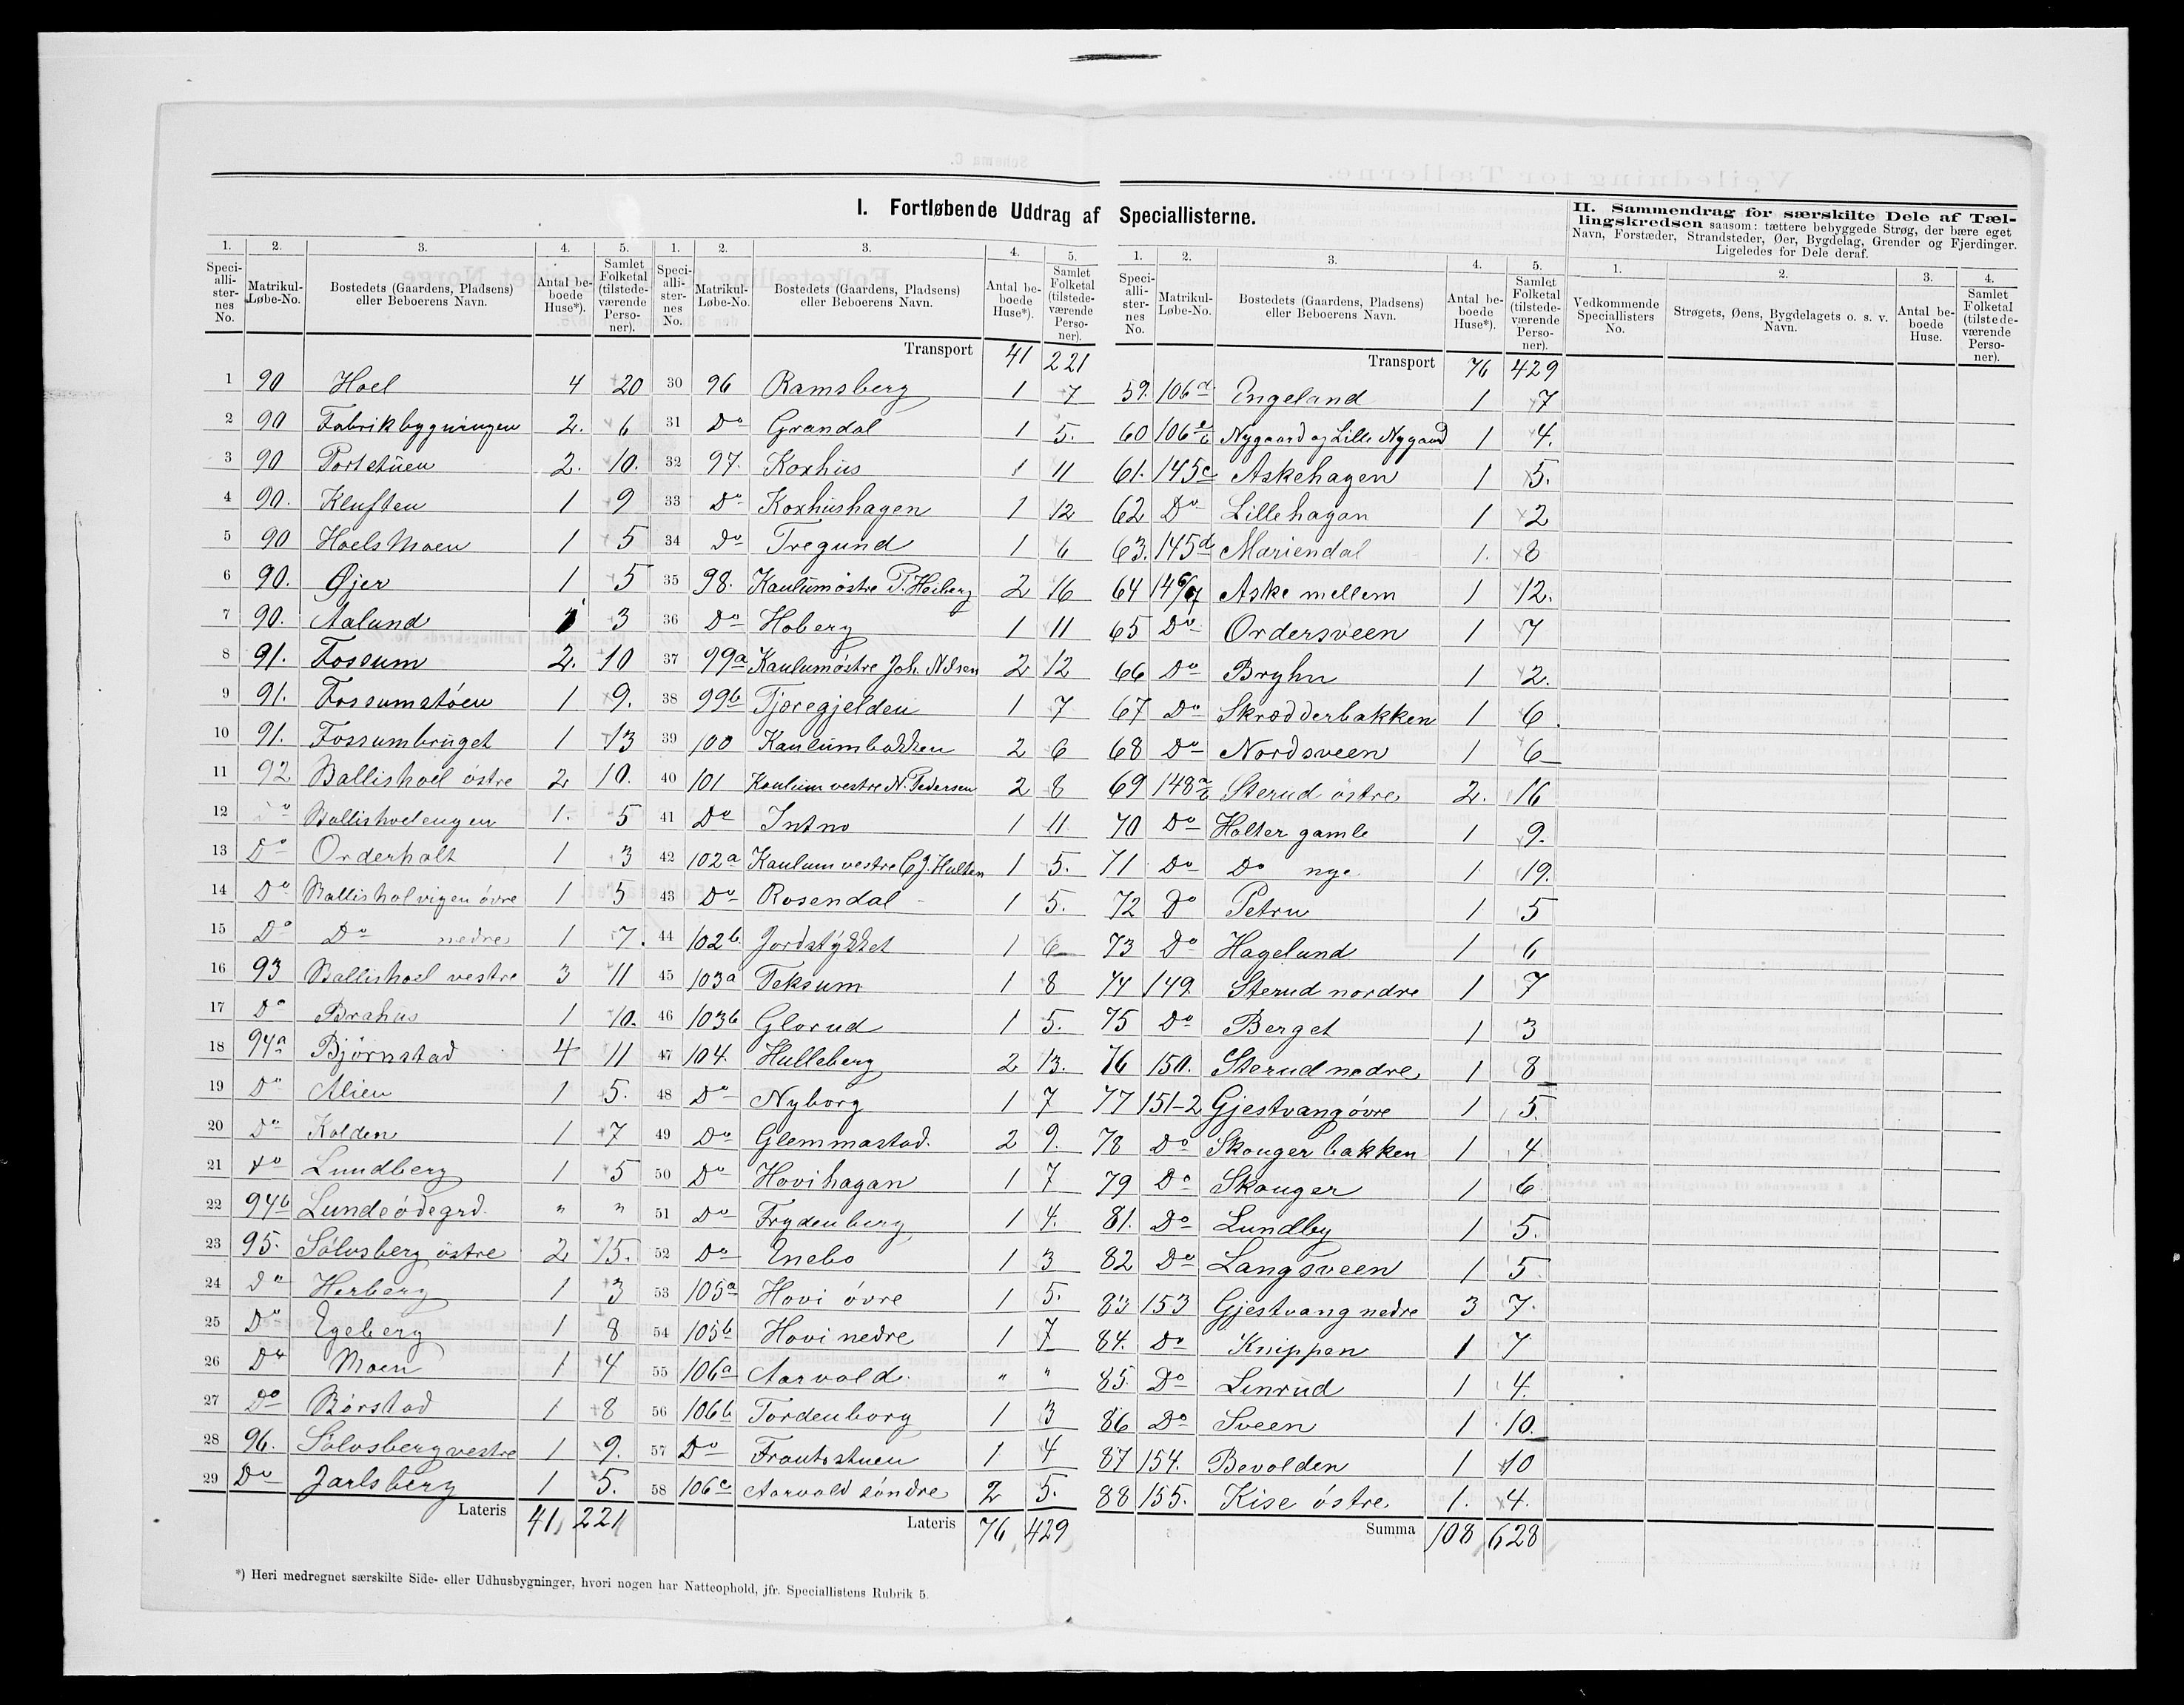 I. Fortløbende Uddrag af Speciallisterne.
1. 2. 3. 4. 5.
Speciallisternes No. Matrikul-Løbe-No. Bostedets (Gaardens, Pladsens) eller Beboerens Navn. Antal beboede Huse*). Samlet Folketal (tilstedeværende Personer).
1 90 Hoel 4 20
2 90 Fabrikbygningen 2. 6
3 90 Portstuen 2. 10.
4 90. Kluften 1 9
5 90 HoelsMoen 1 5
6 90. Øjer 1 5
7 90. Aalund 1 3
8 91. Fossum 2. 10
9 91. Fossumstöen 1 9.
10 91. Fossumbruget 1 13
11 92 Ballishoel östre 2 10.
12 Do Ballishoelengen 1. 5
13 Do Orderholt 1 3
14 Do Ballisholvigen övre 1 5
15 Do Do nedre 1 7.
16 93 Ballishoel vestre 3 11
17 Do Brahus 1 10.
18 94a Bjørnstad 4 11
19 Do Alien 1 5.
20 Do Kolden 1 7
21 Do Lundberg 1 5
22 94b Lundeödegrd. " "
23 95. Sölvsberg östre 2 15.
24 Do Herberg 1 3
25 Do Egeberg 1 8
26 Do Moen 1 4
27 Do Börstad 1 8
28 96. Sölvsberg vestre 1 9.
29 Do Jarlsberg 1 5.
Lateris 41, 221
*) Heri medregnet særskilte Side- eller Udhusbygninger, hvori nogen har Natteophold, jfr. Speciallistens Rubrik 5.
1. 2. 3. 4. 5.
Speciallisternes No. Matrikul-Løbe-No. Bostedets (Gaardens, Pladsens) eller Beboerens Navn. Antal beboede Huse*). Samlet Folketal (tilstedeværende Personer).
Transport 41 221
30 96 Ramsberg 1 7
31 Do Grandal 1 5.
32 97. Koxhus 1 11
33 Do Koxhushagen 1 12
34 Do Tregund 1 6
35 98. Kaulum östre P. Hoberg 2 16
36 Do Hoberg 1 11
37 99a Kaulumöstre Joh. Nilsen 2 12
38 99b Tjæregjelden 1 7
39 100 Kaulumbakken 2 6
40 101 Kaulum vestre N. Pedersen 2 8
41 Do Intno 1 11
42 102a Kaulum vestre C. J. Hulten 1 5.
43 Do Rosendal 1 5.
44 102b. Jordstykket 1 6
45 103a Teksum 1 8
46 103b Glorud 1 5.
47 104. Hulleberg 2 13.
48 Do Nyborg 1 7
49 Do Glemmastad. 2 9.
50 Do Hovihagan 1 7
51 Do Frydenberg 1 4.
52 Do Enebo 1 3
53 105a Hovi övre 1 5.
54 105b Hovi nedre 1 7
55 106a Aarvold. " "
56 106b Tordenborg 1 3
57 Do Frantsstuen 1 4
58 106c Aarvold söndre 2 5.
Lateris 76, 429
1. 2. 3. 4. 5.
Speciallisternes No. Matrikul-Løbe-No. Bostedets (Gaardens, Pladsens) eller Beboerens Navn. Antal beboede Huse*). Samlet Folketal (tilstedeværende Personer).
Transport 76 429
59. 106d Engeland 1 7
60 106 Nygaard og Lille Nygaard 1 4.
61. 145c Askehagen 1 5.
62 Do Lillehagan 1 2
63. 145d Mariendal 1. 8
64 146/47 Aske mellem 1 12.
65 Do Ordersveen 1 7
66 Do Bryhn 1 2.
67 Do Skrædderbakken 1 6.
68 Do Nordsveen 1 6
69 148a/b Sterud östre 2. 16
70 Do Holter gamle 1 9.
71 Do Do nye 1 19.
72 Do Petru 1 5
73 Do Hagelund 1 6
74 149 Sterud nordre 1 7
75 Do Berget 1 3
76 150. Sterud nedre 1 8
77 151-2 Gjestvang övre 1 5.
78 Do Skougerbakken 1 4
79 Do Skouger 1 6
81. Do Lundby 1 5.
82 Do Langsveen 1 5
83 153 Gjestvang nedre 3 7.
84. Do Knippen 1 7
85. Do Linrud 1 4.
86 Do Sveen 1 10.
87 154. Bevolden 1 10
88 155. Kise östre. 1. 4.
Summa 108 628
II. Sammendrag for særskilte Dele af Tællingskredsen saasom: tættere bebyggede Strøg, der bære eget Navn, Forstæder, Strandsteder, Øer, Bygdelag, Grender og Fjerdinger. Ligeledes for Dele deraf.
1. 2. 3. 4.
Vedkommende Speciallisters No. Strøgets, Øens, Bygdelagets o. s. v. Navn. Antal beboede Huse. Samlet Folketal (tilstedeværende Personer).